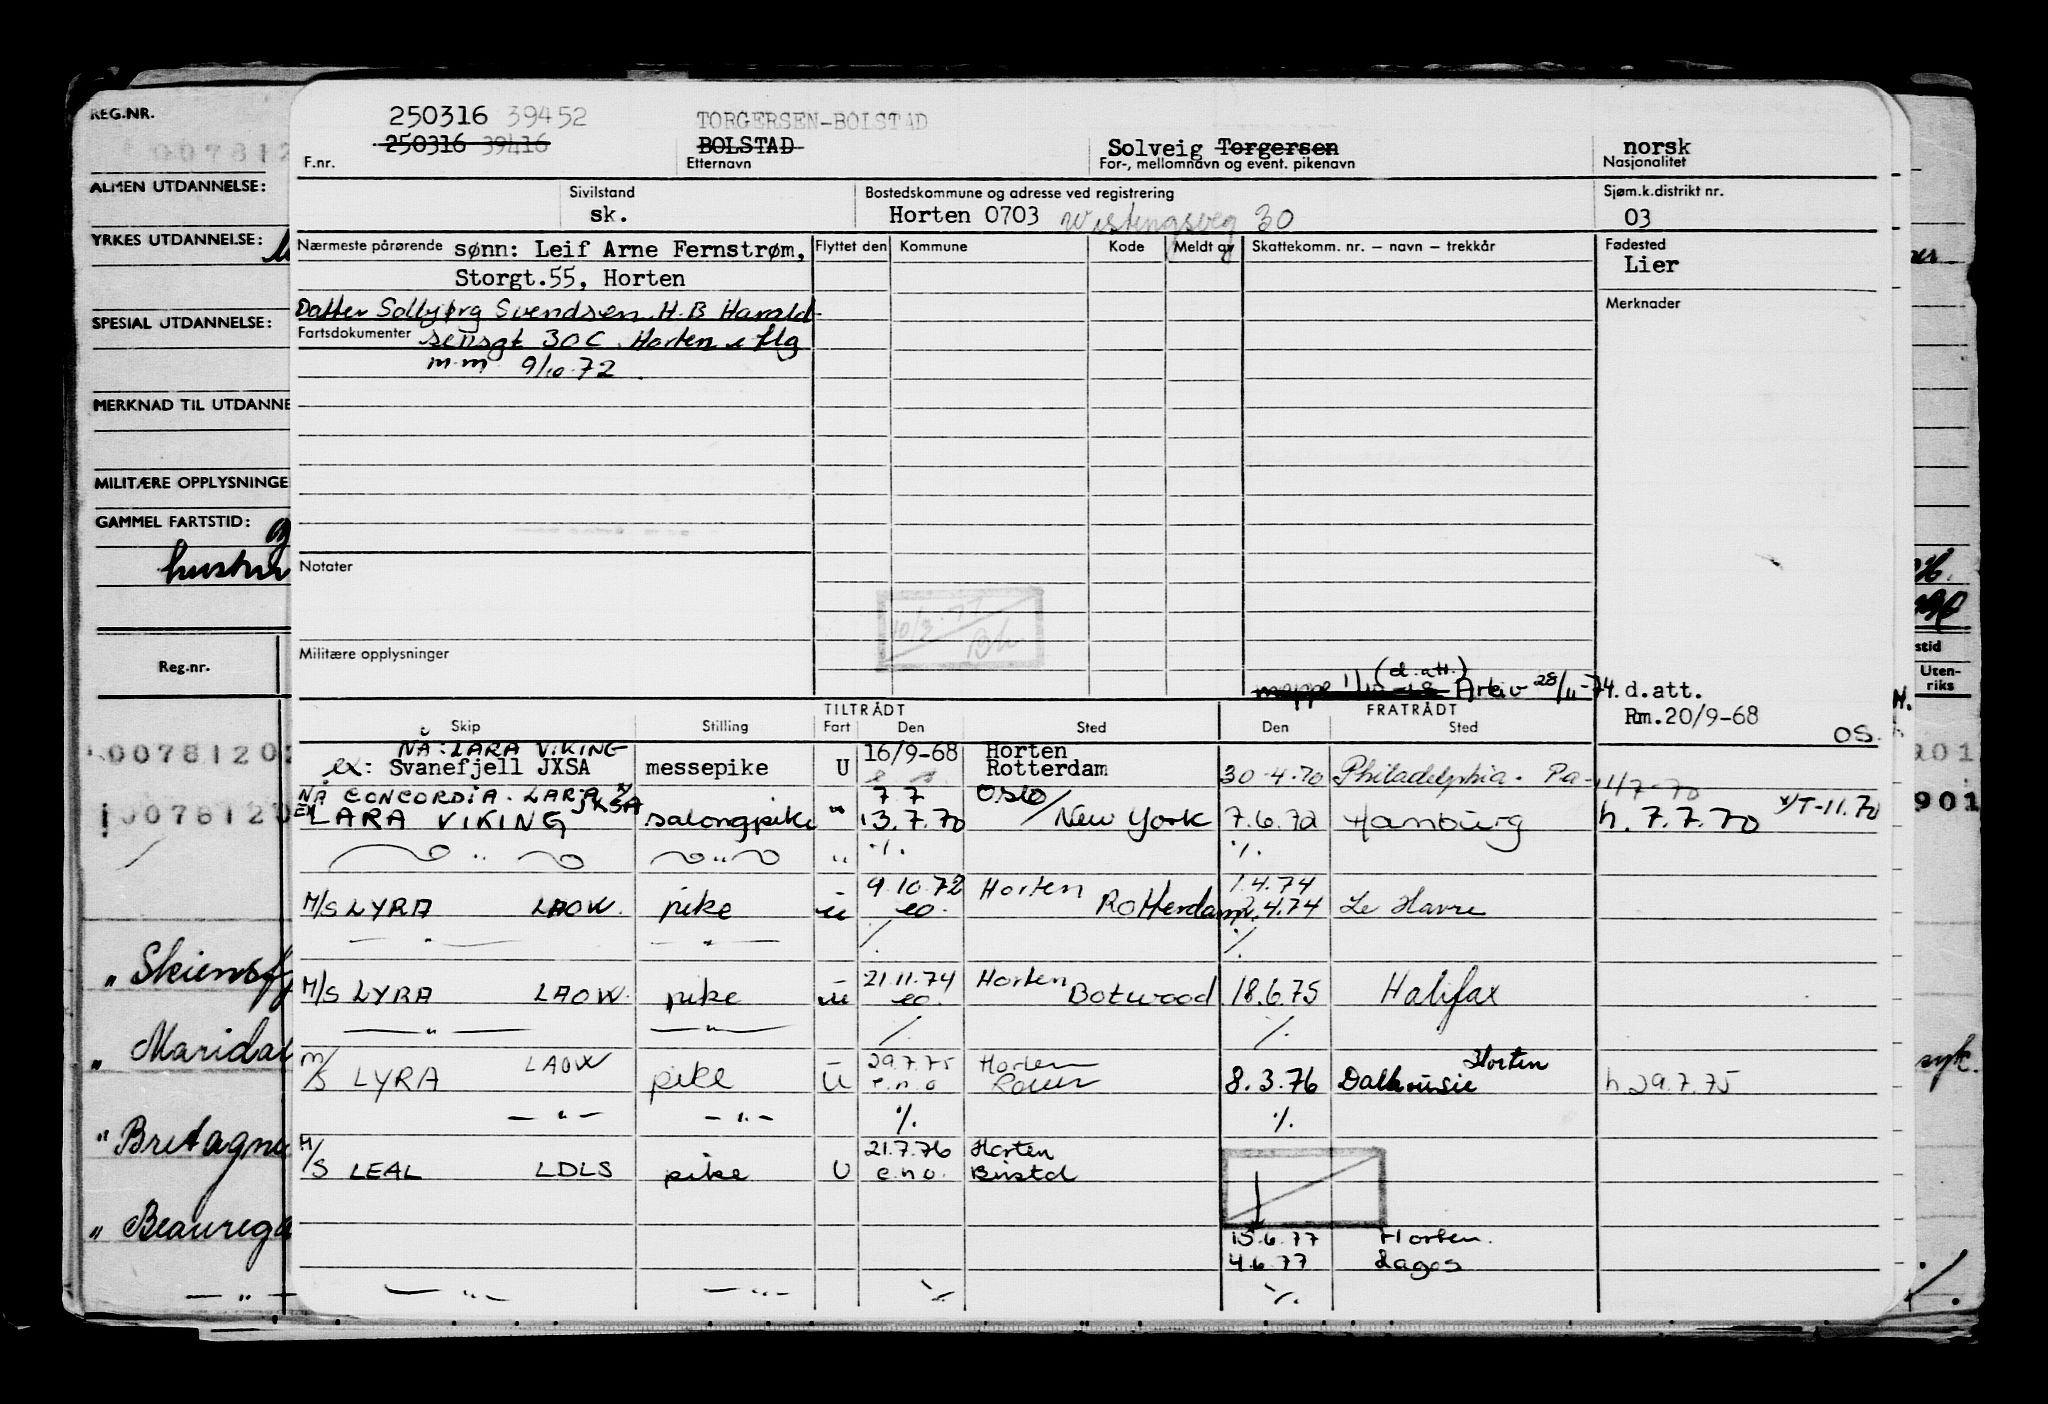 REG.NR.
007812
ALMEN UTDANNELSE:
YRKES UTDANNELSE:
SPESIAL UTDANNELSE:
MERKNAD TIL UTDANNE
MILITÆRE OPPLYSNINGE
GAMMEL FARTSTID:
Reg.nr.
0078120
0078120
" Skiensfj
" Maridal
" Bretagne
" Beaurega
250316 39452
250316 39416
F.nr.
TORGERSEN-BOLSTAD
BOLSTAD
Etternavn
Solveig Torgersen
For-, mellomnavn og event. pikenavn
norsk
Nasjonalitet
Sivilstand
sk.
Bostedskommune og adresse ved registrering
Horten 0703 Wistingsveg 30
Sjøm.k.distrikt nr.
03
Nærmeste pårørende sønn: Leif Arne Fernstrøm,
Storgt.55, Horten
Datter Solbjørg Svendsen H.B Harald-
Fartsdokumenter sensgt 30C Horten iflg
m.m 9/10.72
Flyttet den Kommune Kode Meldt av Skattekomm. nr. – navn – trekkår
Fødested
Lier
Merknader
Notater
10/3.77
Militære opplysninger
(d.att.)
mappe Arkiv 28/11-74. d.att.
Rm.20/9-68
OS.
TILTRÅDT FRATRÅDT
Skip Stilling Fart Den Sted Den Sted
NÅ: LARA VIKING 16/9-68 Horten
ex: Svanefjell JXSA messepike U Rotterdam 30.4.70 Philadelphia. Pa-
NÅ CONCORDIA LARA JXSA 7.7 Oslo
EX LARA VIKING salongpike " 13.7.70 / New York 7.6.72 Hamburg h. 7.7.70
" " " % %
9.10.72 Horten 1.4.74
M/S LYRA LAOW. pike ü eo. Rotterdam 2.4.74 Le Havre
" " / %
21.11.74 Horten
M/S LYRA LAOW. pike ü eo. Botwood 18.6.75 Halifax
" " / %
LAOW 29.7.75 Horten Horten
M/S LYRA pike U e.n.o Rouen 8.3.76 Dalhousie h.29.7.75
" " % %
21.7.76 Horten
M/S LEAL LDLS pike U e.n.o. Bristol
15.6.77 Horten.
4.6.77 Lagos
" " % %
stid
Uten-
riks
201
901
syk.